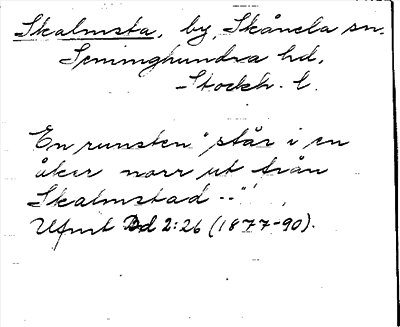 Skalmsta, by, Skånela sn.
Seminghundra hd.
Stockh. l.
En runsten "står i en
åker norr ut från
Skalmstad --"
Ufmt Bd 2:26 (1877-90).